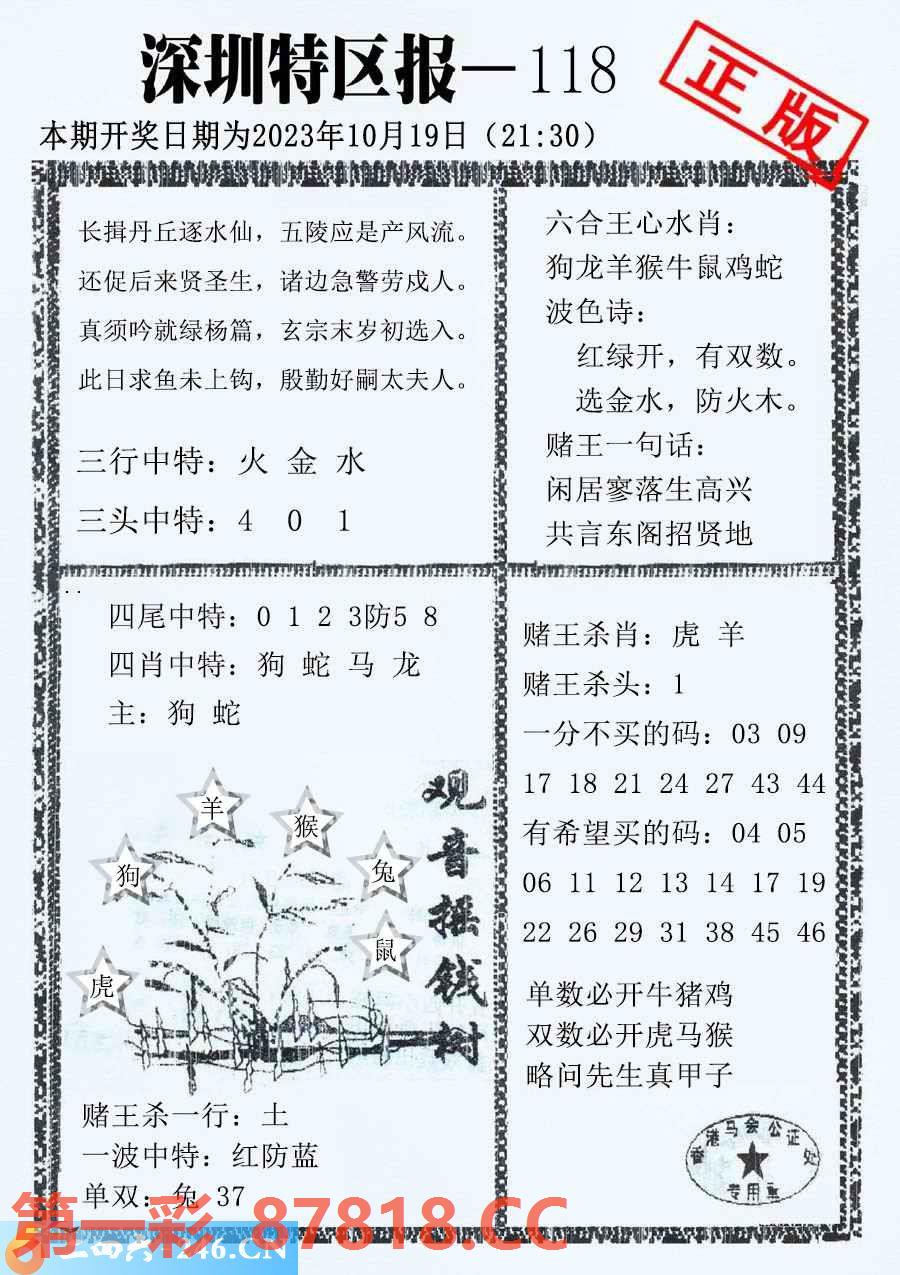 深圳特区报—118
正版
本期开奖日期为2023年10月19日（21:30）
长揖丹丘逐水仙，五陵应是产风流。
还促后来贤圣生，诸边急警劳戍人。
真须吟就绿杨篇，玄宗末岁初选入。
此日求鱼未上钩，殷勤好嗣太夫人。
三行中特：火 金 水
三头中特：4 0 1
六合王心水肖：
狗龙羊猴牛鼠鸡蛇
波色诗：
红绿开，有双数。
选金水，防火木。
赌王一句话：
闲居寥落生高兴
共言东阁招贤地
四尾中特：0 1 2 3防5 8
四肖中特：狗 蛇 马 龙
主：狗 蛇
羊
猴
狗
兔
鼠
虎
观音摇钱树
赌王杀一行：土
一波中特：红防蓝
单双：兔 37
赌王杀肖：虎 羊
赌王杀头：1
一分不买的码：03 09
17 18 21 24 27 43 44
有希望买的码：04 05
06 11 12 13 14 17 19
22 26 29 31 38 45 46
单数必开牛猪鸡
双数必开虎马猴
略问先生真甲子
香港马会公证处
专用章
第一彩 87818.CC
246.CN